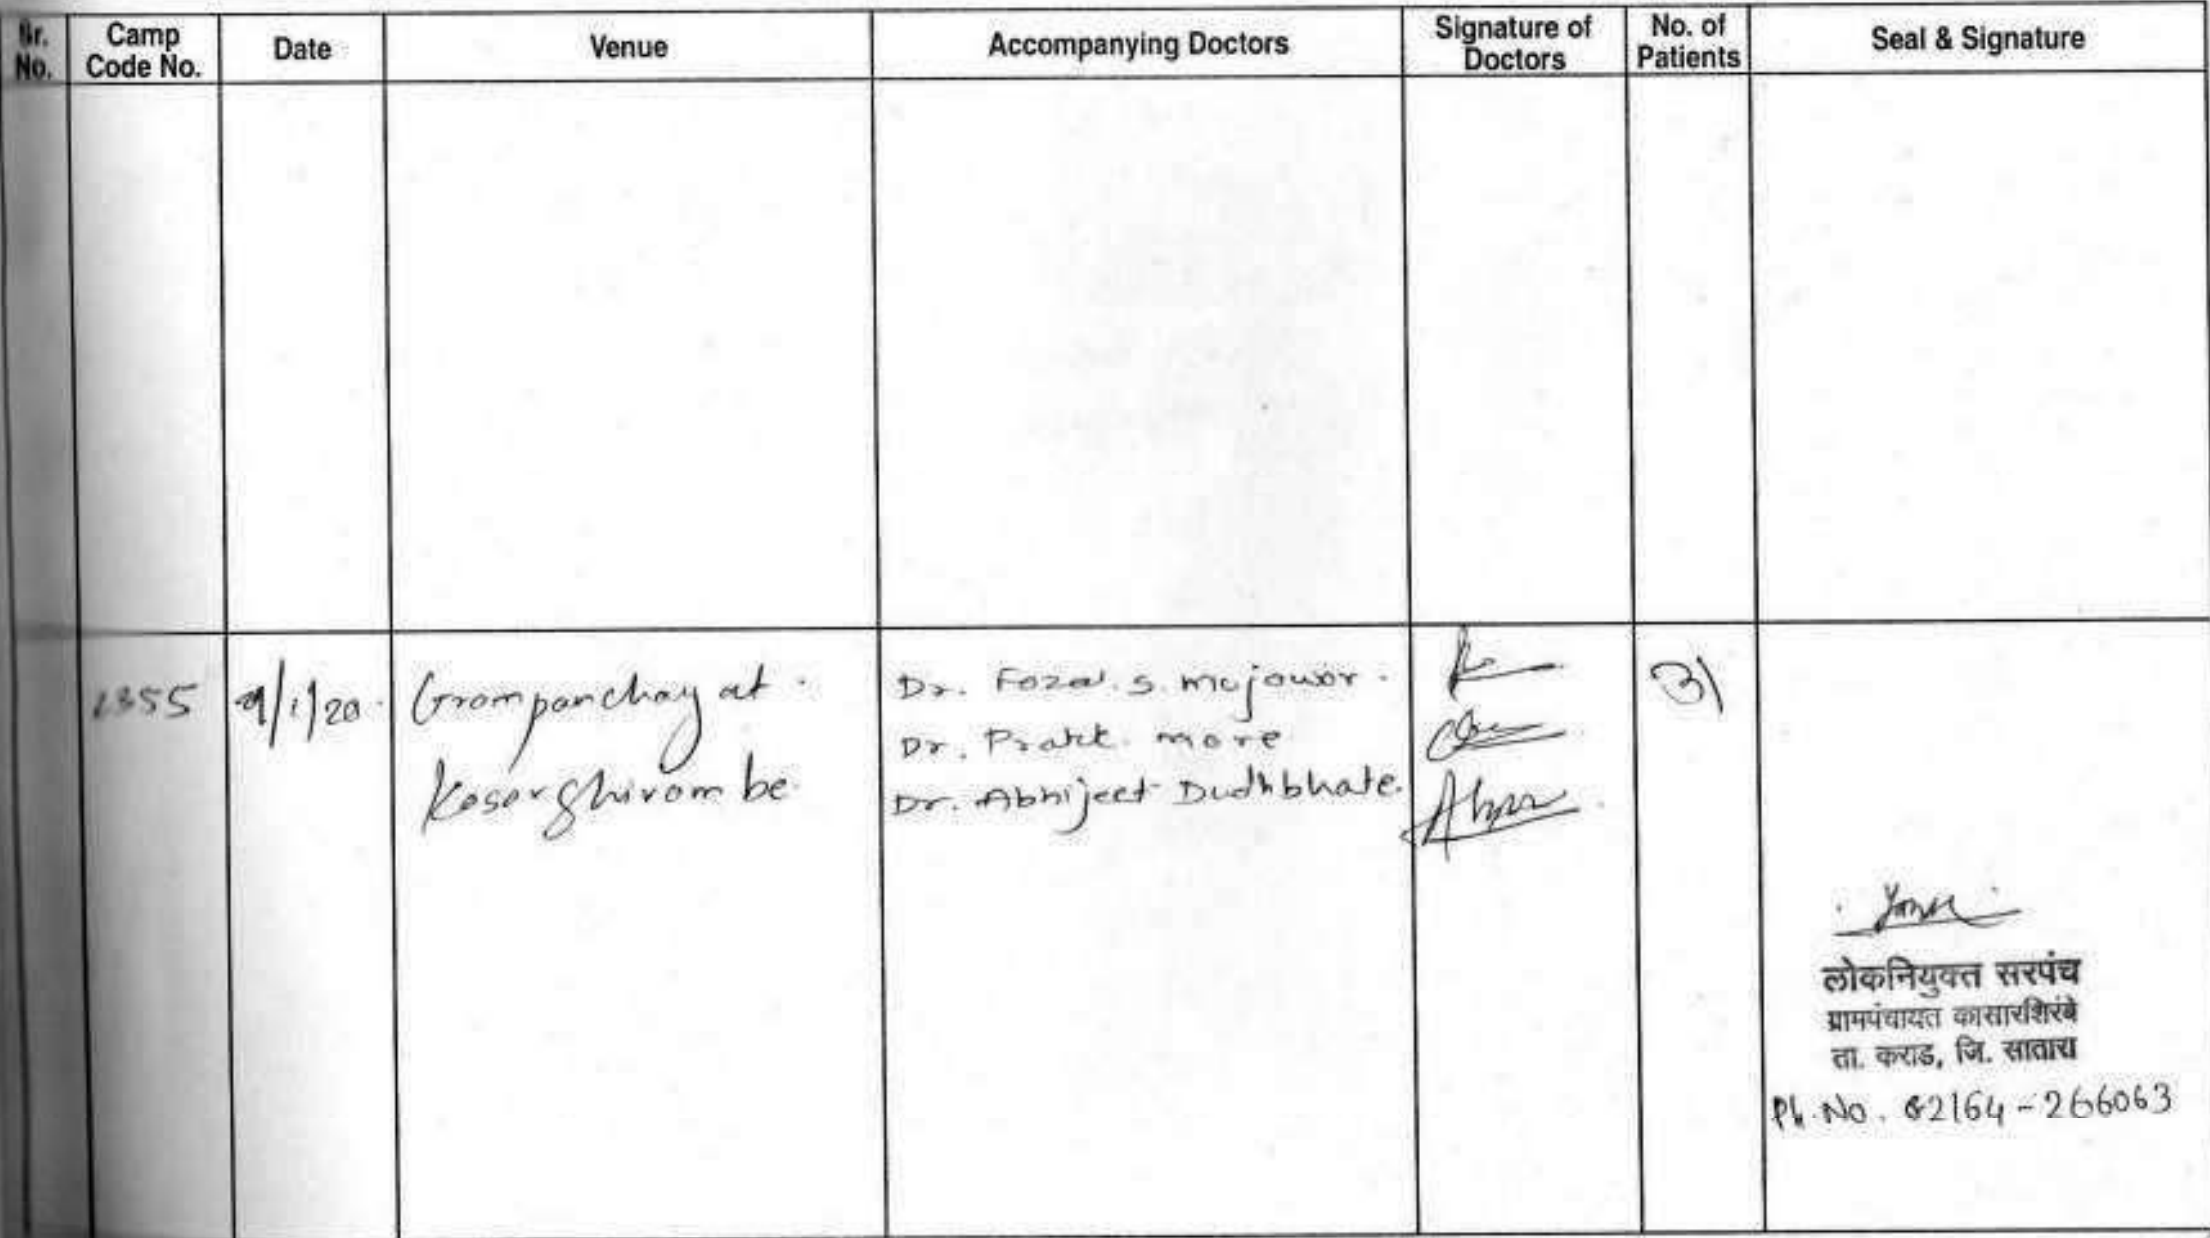 Sr. No.
Camp Code No.
Date
Venue
Accompanying Doctors
Signature of Doctors
No. of Patients
Seal & Signature
1355
9/1/20
Grampanchayat
Kasarshirambe
Dr. Fazal. S. Mujawar.
Dr. Pratik More
Dr. Abhijeet Dudhbhate.
31
लोकनियुक्त सरपंच
ग्रामपंचायत कासारशिरंबे
ता. कराड, जि. सातारा
Ph. No. 02164-266063